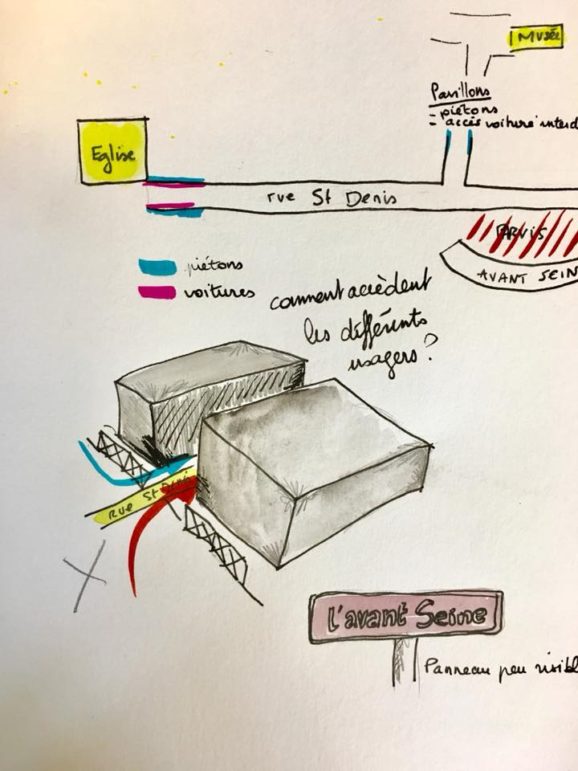 Musée
Pavillons
- piétons
= accès voiture interd
Eglise
rue St Denis
PARVIS
AVANT SEIN
piétons
voitures
comment accèdent
les différents
usagers ?
rue St Denis
l'avant Seine
Panneau peu visibl